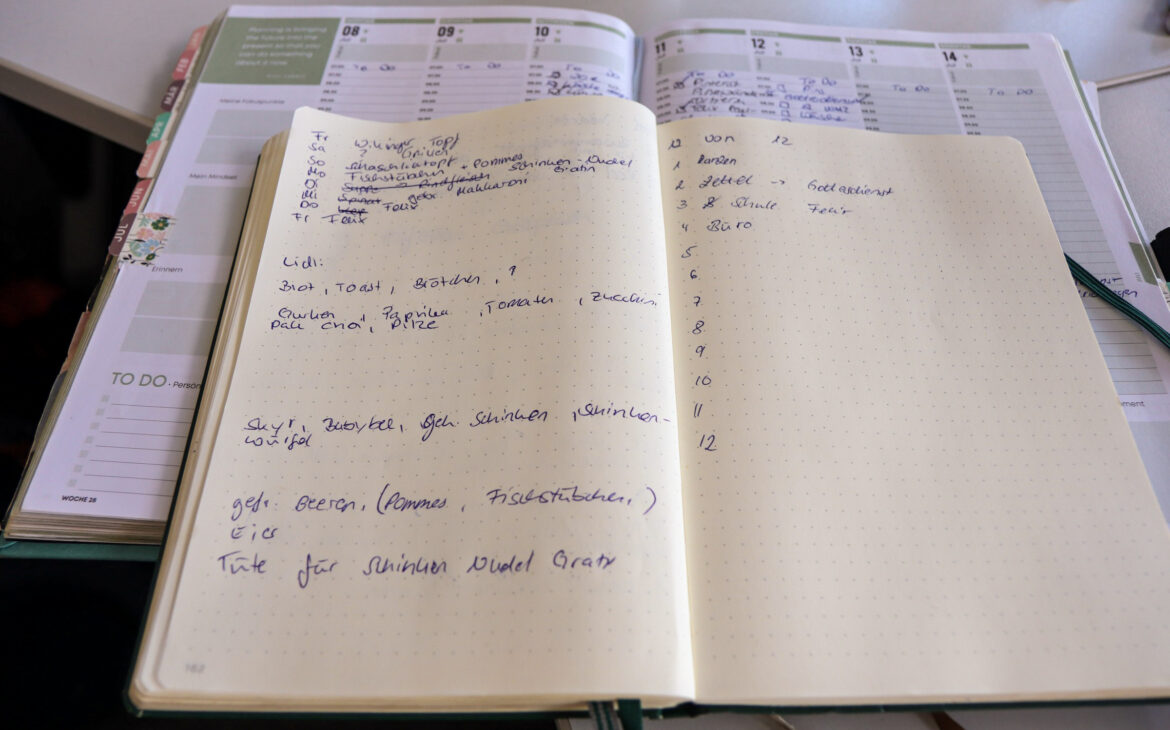 Planning is bringing
the future into the
present so that you
can do something
about it now
08
09
10
11
12
13
14
To Do
To Do
To Do
To Do
To Do
To Do
FEB
MAR
APR
JUN
JUL
Meine Fokuspunkte
Mein Mindset
Erinnern
TO DO • Persön
WOCHE 28
Fr Wikinger Topf
Sa ? Grillen
So Schaschliktopf + Pommes
Mo Fischstäbchen Schinken-Nudel
Di Suppe Rindfleisch Gratin
Mi Spinat gebr. Makkaroni
Do Felix
Fr Felix
Lidl:
Brot, Toast, Brötchen, ?
Gurken, Paprika, Tomaten, Zucchini
Pak choi, Pilze
Skyr, Babybel, gek. Schinken, Schinken-
würfel
gefr. Beeren, (Pommes, Fischstäbchen,)
Eier
Tüte für Schinken Nudel Gratin
152
12 von 12
1
2 Zettel → Gottesdienst
3 Schule Felix
4 Büro
5
6
7
8
9
10
11
12